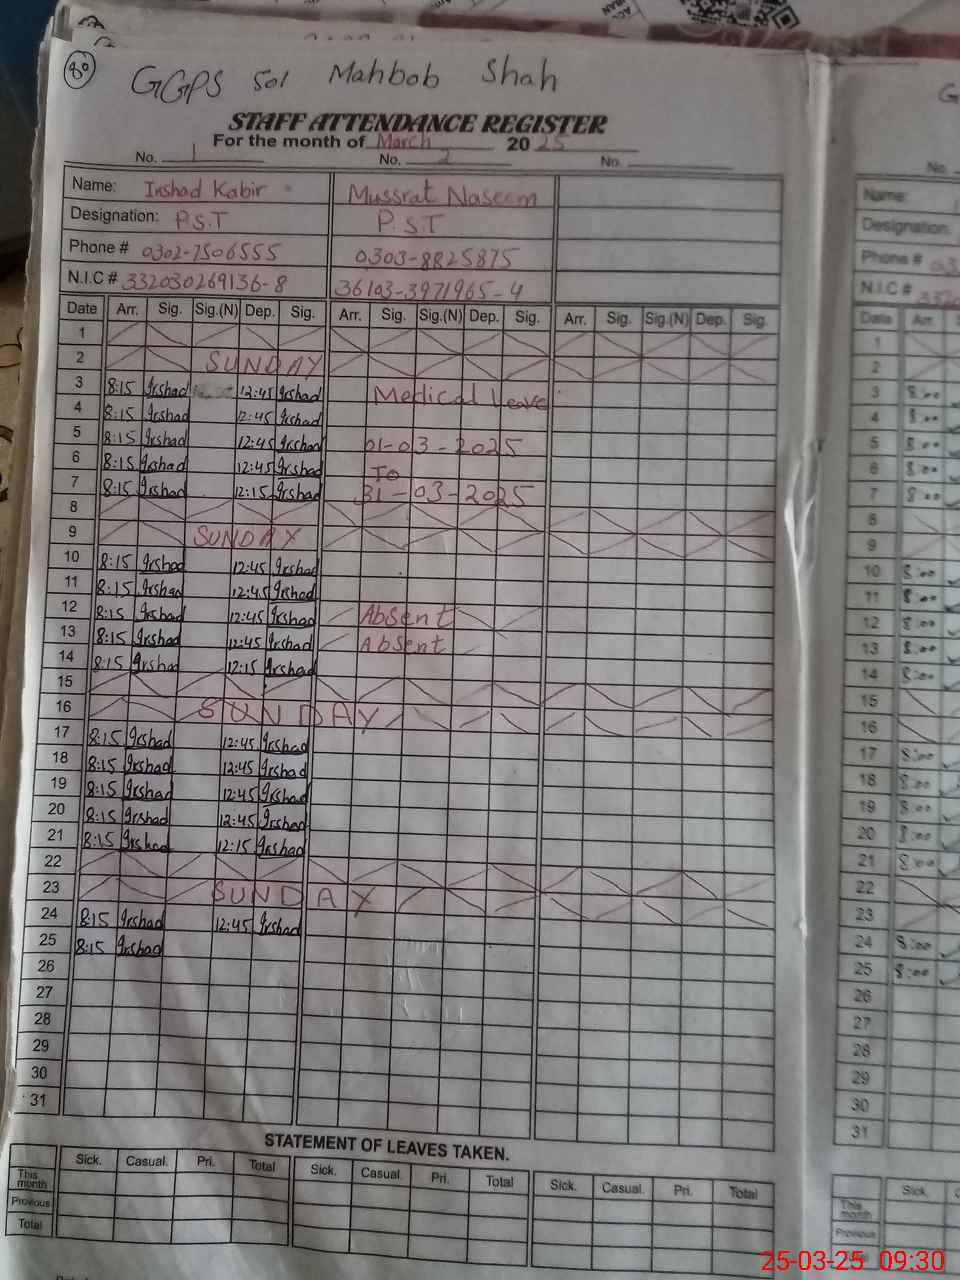 80
GGPS 501 Mahbob Shah
STAFF ATTENDANCE REGISTER
For the month of March 2025
No. 1 No. 2 No.
Name: Irshad Kabir Mussrat Naseem
Designation: P.S.T P.S.T
Phone # 0302-7506555 0303-8825875
N.I.C # 332030269136-8 36103-3971965-4
Date Arr. Sig. Sig.(N) Dep. Sig. Arr. Sig. Sig.(N) Dep. Sig. Arr. Sig. Sig.(N) Dep. Sig.
1
2 SUNDAY
3 8:15 Irshad 12:45 Irshad Medical Leave
4 8:15 Irshad 12:45 Irshad
5 8:15 Irshad 12:45 Irshad 01-03-2025
6 8:15 Irshad 12:45 Irshad To
7 8:15 Irshad 12:15 Irshad 31-03-2025
8
9 SUNDAY
10 8:15 Irshad 12:45 Irshad
11 8:15 Irshad 12:45 Irshad
12 8:15 Irshad 12:45 Irshad Absent
13 8:15 Irshad 12:45 Irshad Absent
14 8:15 Irshad 12:15 Irshad
15
16 SUNDAY
17 8:15 Irshad 12:45 Irshad
18 8:15 Irshad 12:45 Irshad
19 8:15 Irshad 12:45 Irshad
20 8:15 Irshad 12:45 Irshad
21 8:15 Irshad 12:15 Irshad
22
23 SUNDAY
24 8:15 Irshad 12:45 Irshad
25 8:15 Irshad
26
27
28
29
30
31
STATEMENT OF LEAVES TAKEN.
Sick. Casual. Pri. Total Sick. Casual. Pri. Total Sick. Casual. Pri. Total
This month
Previous
Total
G
No.
Name:
Designation:
Phone # 03
N.I.C # 3320
Date Arr.
1
2
3 8:00
4 8:00
5 8:00
6 8:00
7 8:00
8
9
10 8:00
11 8:00
12 8:00
13 8:00
14 8:00
15
16
17 8:00
18 8:00
19 8:00
20 8:00
21 8:00
22
23
24 8:00
25 8:00
26
27
28
29
30
31
Sick.
This month
Previous
25-03-25 09:30